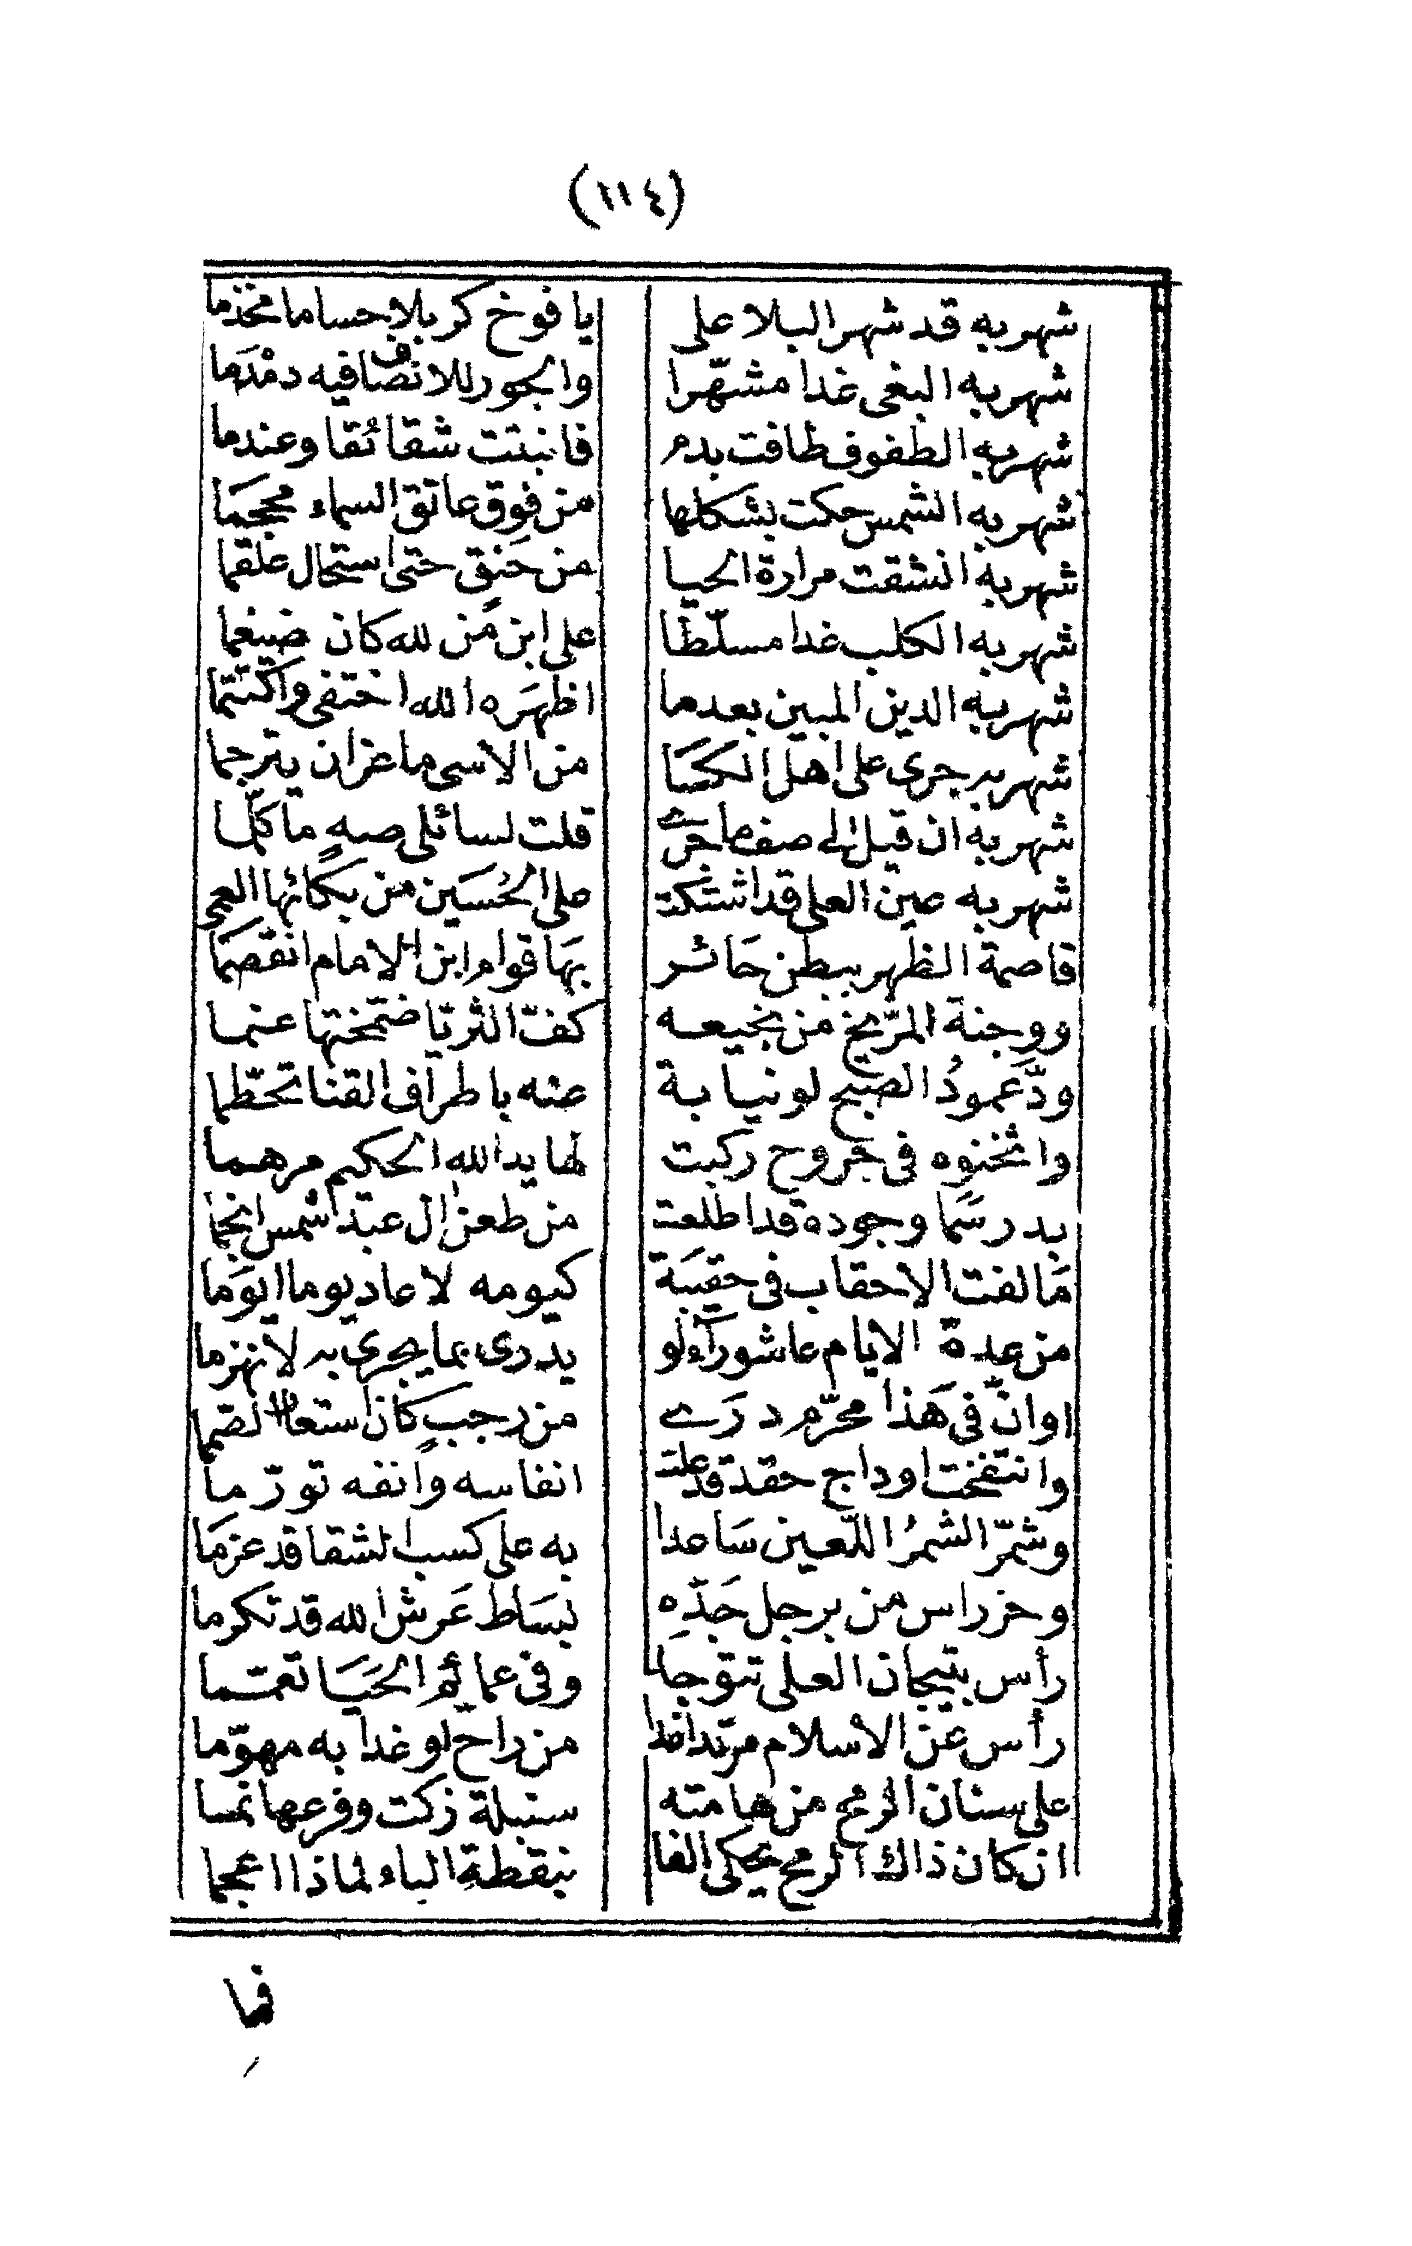 (١١٤)
شهر به قد شهر البلا على يا فوخ كربلا حساما مخذما
شهر به البغى غدا مشهّرا والجور للانصاف فيه دمْدَما
شهر به الطفوف طافت بدم فانبتت شقائقا وعندما
شهر به الشمس حكت بشكلها من فوق عاتق السماء محجما
شهر به انشقت مرارة الحيا من حنق حتى استحال علقما
شهر به الكلب غدا مسلّطا على ابن من لله كان ضيغما
شهر به الدين المبين بعدما اظهره الله اختفى واكتتما
شهر به جرى على اهل الكسا من الاسى ما عز ان يترجما
شهر به ان قيل لى صف ما جرى قلت لسائلى صه ما كلّما
شهر به عين العلى قد اشتكت على الحُسَين من بكائها العمى
قاصمة الظهر ببطن حائر بها قوام ابن الامام انقصما
ووجنة المرّيخ من نجيعه كفّ الثريّا ضمّختها عنما
ودّ عمودُ الصبح لو نيابة عنه باطراف القنا تحطّما
واثخنوه فى جروح ركبت لها يد الله الحكيم مرهما
بدر سما وجوده قد اطلعت من طعن ال عبد شمس انجما
مَا لفت الاحقاب فى حقيبة كيومه لا عاد يوما ايوما
من عدة الايام عاشوراء لو يدرى بما يجرى به لانهزما
او انّ فى هَذا محرّم دَرَى من رجب كان استعار الصمما
وانتفخت اوداج حقد قد علت انفاسه وانفه تورّما
وشمّر الشمرُ اللّعين سَاعدا به على كسب الشقا قد عزما
وحز راس من برجل جَدّهِ بسَاط عَرش الله قد تكرما
رأس بتيجان العلى تتوجا وفى عمائم الحَيَا تعمّما
رأس عن الاسلام مرتدا غدا من راح لو غدا به مهوّما
على سنان الرمح من هامته سنبلة زكت وفرعها نما
ان كان ذاك الرمح يحكى الفا بنقطة الباء لماذا اعجما
فما